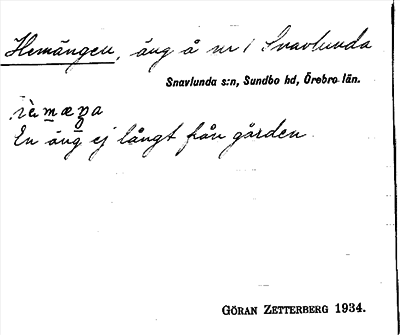 Hemängen, äng å nr 1 Snavlunda
Snavlunda s:n, Sundbo hd, Örebro län.
En äng ej långt från gården.
GÖRAN ZETTERBERG 1934.